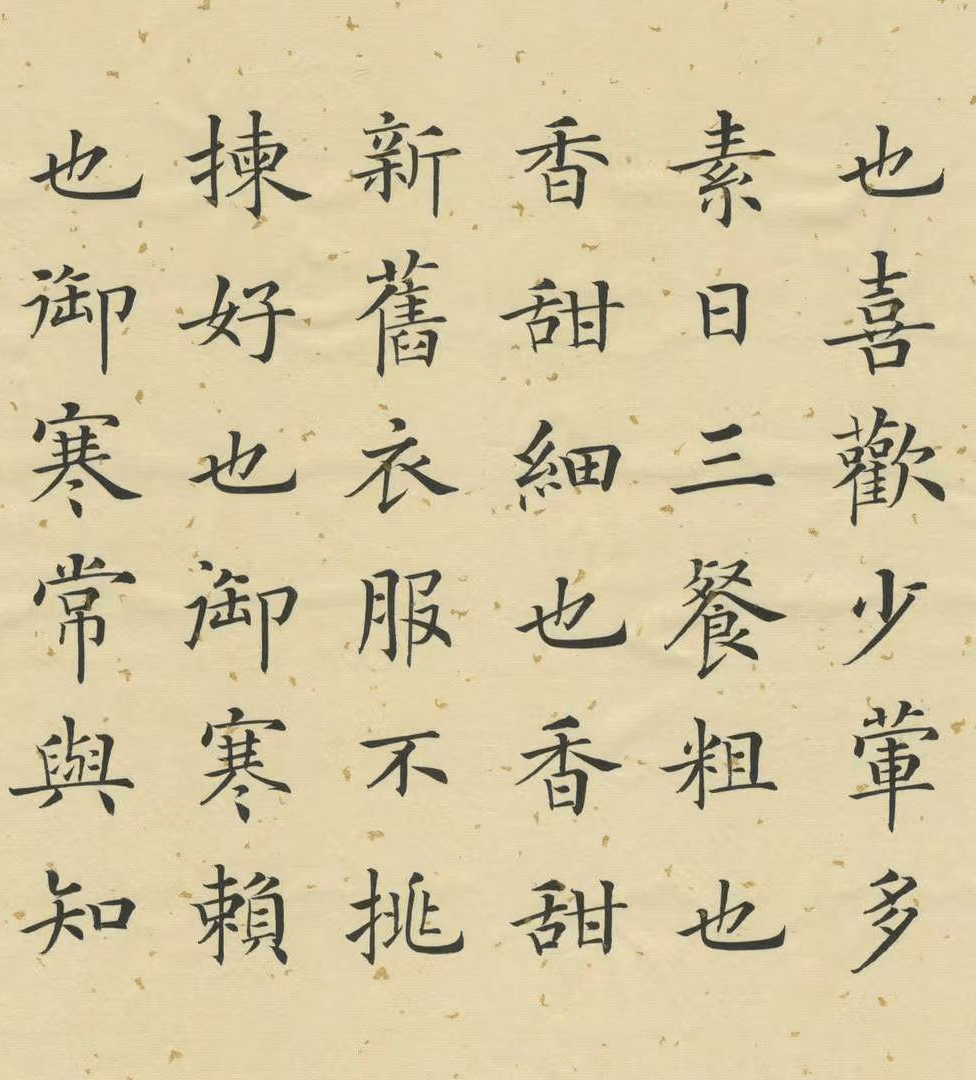 也喜歡少葷多
素日三餐粗也
香甜細也香甜
新舊衣服不挑
揀好也御寒賴
也御寒常與知